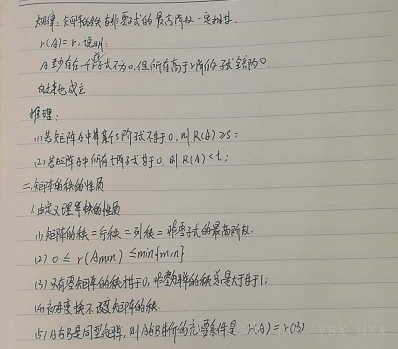 规律:矩阵的秩与非零子式的最高阶数一定相等.
r(A)=r,说明:
A至少存在一个r阶子式不为0,但所有高于r阶的子式全部为0
反过来也成立
推理:
(1)若矩阵A中有某个s阶子式不等于0,则R(A)≥s;
(2)若矩阵A中所有t阶子式等于0,则R(A)<t;
二、矩阵的秩的性质
1.由定义理解秩的性质
(1)矩阵的秩=行秩=列秩=非零子式的最高阶数.
(2) 0≤r(Amxn)≤min{m,n}
(3)只有零矩阵的秩才等于0,非零矩阵的秩总是大于等于1;
(4)初等变换不改变矩阵的秩.
(5)A与B是同型矩阵,则A和B等价的充要条件是 r(A)=r(B)